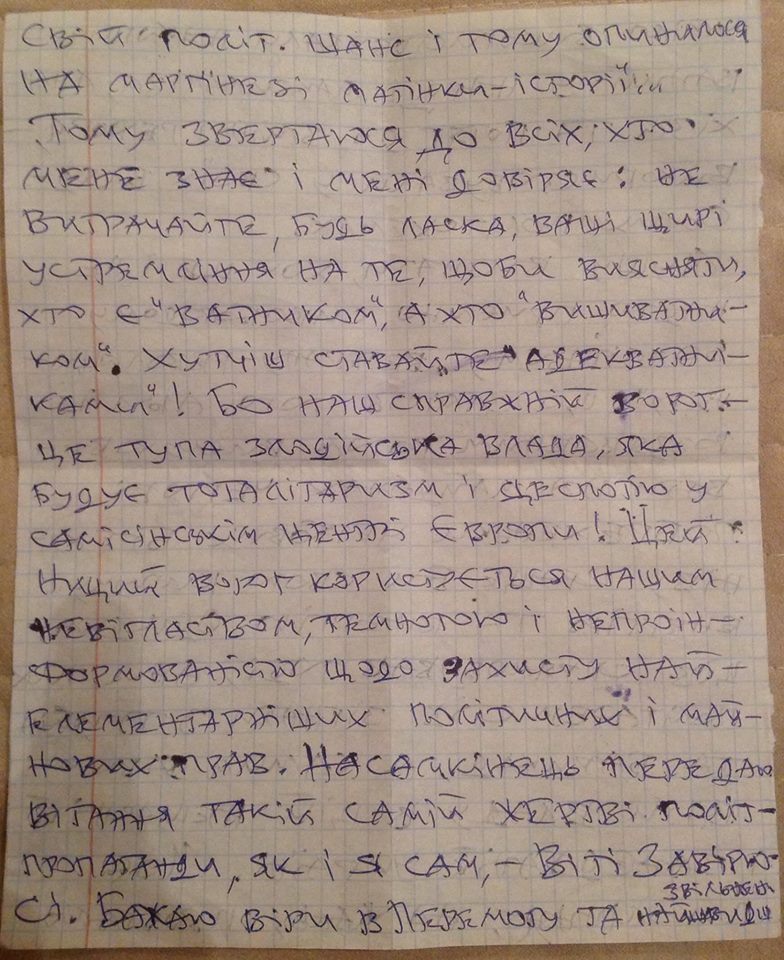 свій політ. шанс і тому опинилося
на маргінезі матінки-історії"...
Тому звертаюся до всіх, хто
мене знає і мені довіряє: не
витрачайте, будь ласка, ваші щирі
устремління на те, щоби виясняти,
хто є "ватником", а хто "вишиватни-
ком". Хутчіш ставайте "адекватні-
ками"! Бо наш справжній ворог -
це тупа злодійська влада, яка
будує тоталітаризм і деспотію у
самісінькім центрі Європи! Цей
ниций ворог користується нашим
невіглаством, темнотою і непроін-
формованістю щодо захисту най-
елементарніших політичних і май-
нових прав. Насамкінець передаю
вітання такій самій жертві політ-
пропаганди, як і я сам, - Віті Завірю-
сі. Бажаю віри в Перемогу та